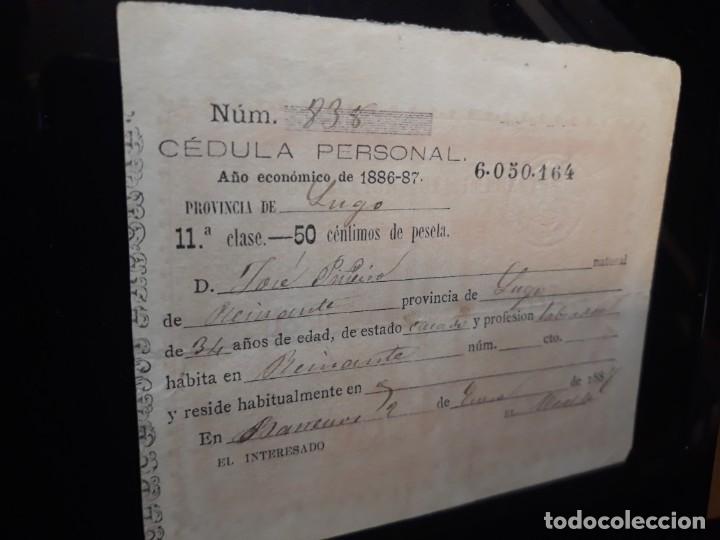 Núm. 838
CÉDULA PERSONAL.
Año económico de 1886-87. 6.050.164
PROVINCIA DE Lugo
11.ª clase.—50 céntimos de peseta.
D. José Piñeiro natural
de Reinante provincia de Lugo
de 34 años de edad, de estado casado y profesion labrador
hábita en Reinante núm. cto.
y reside habitualmente en
En Barreiros 2 de Enero de 1887
EL INTERESADO EL Alcalde
todocoleccion.net